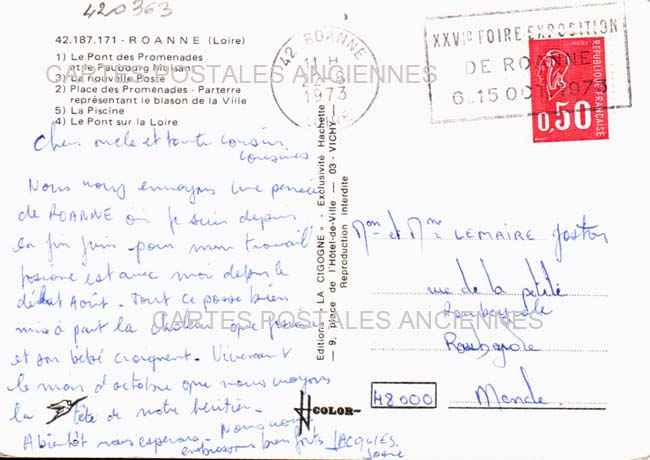 420363
42.187.171 - ROANNE (Loire)
1) Le Pont des Promenades
et le Faubourg Mulsant
3) La nouvelle Poste
2) Place des Promenades - Parterre
représentant le blason de la Ville
5) La Piscine
4) Le Pont sur la Loire
42 ROANNE
1973
LOIRE
XXVIe FOIRE EXPOSITION
DE ROANNE
6.15 OCT. 1973
POSTES
REPUBLIQUE FRANÇAISE
0,50
CARTES POSTALES ANCIENNES
Cher oncle et toute cousin
cousines
Nous vous envoyons une pensée
de ROANNE où je suis depuis
fin juin pour mon travail
est avec moi depuis le
début Août. Tout ce passe bien
mise à part la chaleur que
et son bébé craignent. Vivement
le mois d'octobre que nous voyons
la tête de notre héritier.
A bientôt nous espérons. Nous vous
embrassons bien forts JACQUES.
Editions "LA CIGOGNE" - Exclusivité Hachette
9, place de l'Hôtel-de-Ville — 03 - VICHY
Reproduction interdite
Mon et Mme LEMAIRE
rue de la petite
48000
Mende.
COLOR
CARTES POSTALES ANCIENNES